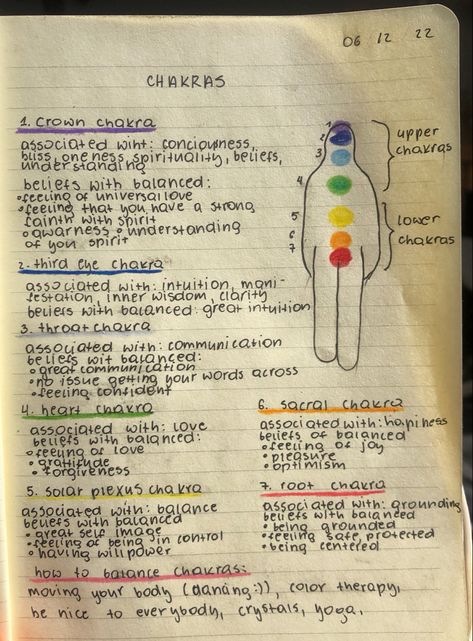 06 12 22
CHAKRAS
1. crown chakra
associated wiht: conciousness,
bliss, oneness, spirituality, beliefs,
understanding
beliefs with balanced:
• feeling of universal love
• feeling that you have a strong
fainth with spirit
• awarness • understanding
of you spirit
1
2
3
4
5
6
7
upper
chakras
lower
chakras
2. third eye chakra
associated with: intuition, mani-
festation, inner wisdom, clarity
beliefs with balanced: great intuition
3. throat chakra
associated with: communication
beliefs wit balanced:
• great communication
• no issue getting your words across
• feeling confident
4. heart chakra
associated with: love
beliefs with balanced:
• feeling of love
• grattitude
• forgiveness
5. solar plexus chakra
associated with: balance
beliefs with balanced
• great self image
• feeling of being in control
• having willpower
6. sacral chakra
associated with: hapiness
beliefs of balanced
• feeling of joy
• pleasure
• optimism
7. root chakra
associated with: grounding
beliefs with balanced
• being grounded
• feeling safe, protected
• being centered
how to balance chakras:
moving your body (dancing:)), color therapy,
be nice to everybody, crystals, yoga,